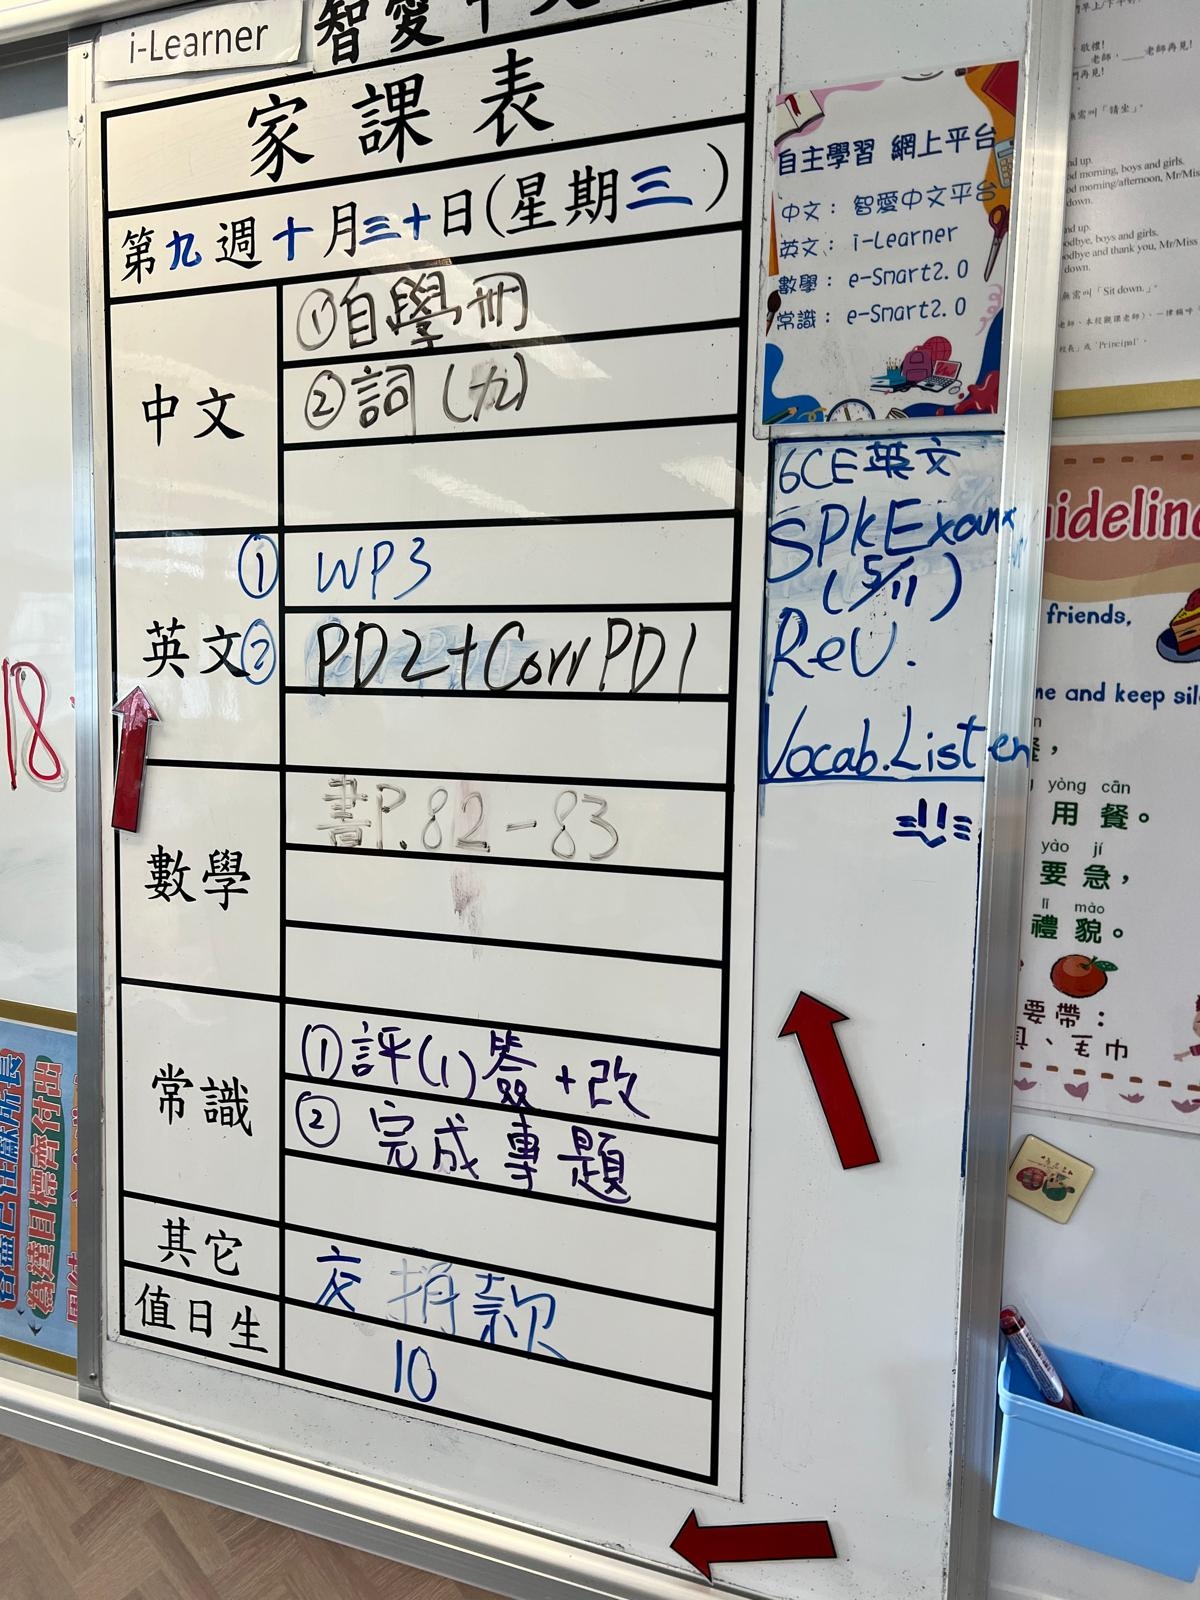 i-Learner
家課表
第九週十月三十日(星期三)
中文
①自學冊
②詞(九)
英文
① WP3
② PD2+Corr PD1
數學
書P.82-83
常識
①評(1)簽+改
② 完成專題
其它
交 捐款
值日生
10
自主學習 網上平台
中文：智愛中文平台
英文：i-Learner
數學：e-Smart2.0
常識：e-Smart2.0
6CE英文
SPK Exam
(5/11)
Rev.
Vocab.Listen
!!
18
敬禮!
老師,____老師再見!
們再見!
無需叫「請坐」。
nd up.
od morning, boys and girls.
od morning/afternoon, Mr/Miss
down.
nd up.
odbye, boys and girls.
odbye and thank you, Mr/Miss
down.
無需叫「Sit down.」。
校長」或「Principal」。
uideline
friends,
me and keep sil
yòng cān
用餐。
yào jí
要急，
lǐ mào
禮貌。
要帶：
具、毛巾
為達目標齊付出